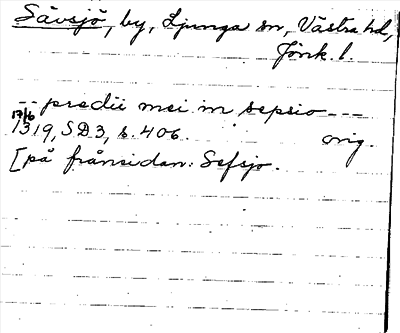 Sävsjö, by, Ljunga sn, Västra hd,
Jönk. l.
-- predii mei in sepsio ---
17/6
1319, SD3, s. 406. orig.
[på frånsidan: Sefsjo.